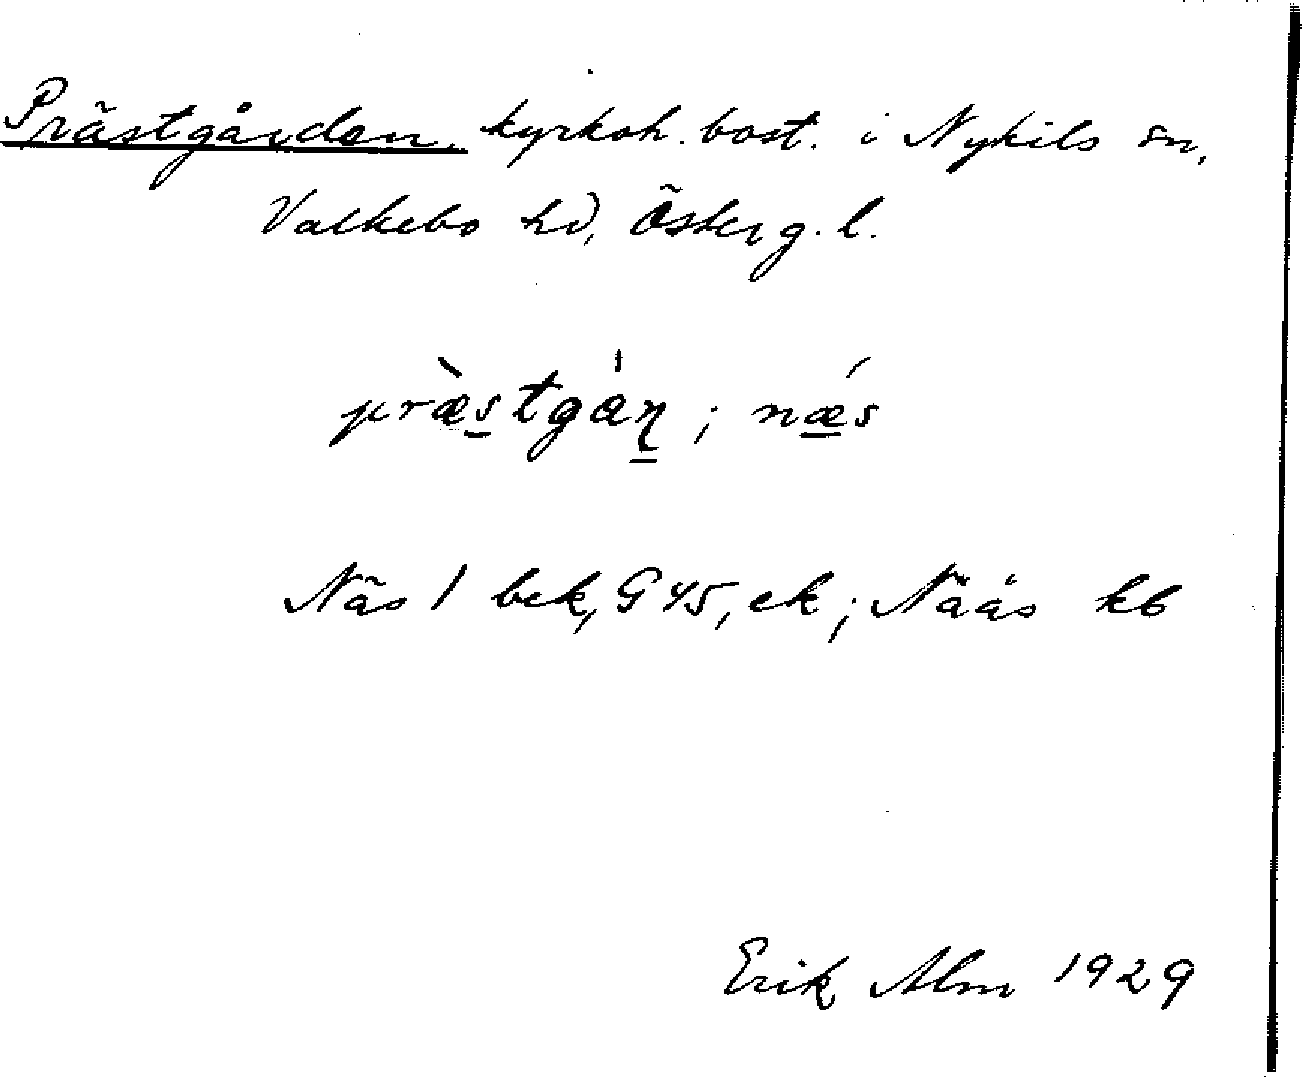 Prästgården, kyrkoh. bost. i Nykils sn,
Valkebo hd, Österg. l.
præ̀stgáɳ ; nǽs
Näs 1 bek, G 45, ek ; Näås kb
Erik Alm 1929